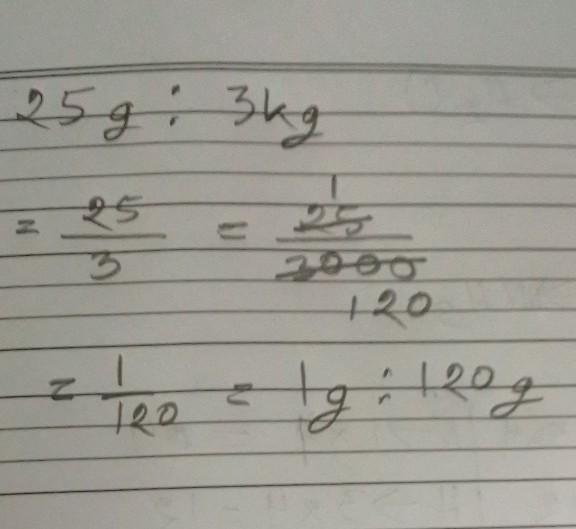 25g : 3kg
= 25/3 = 1 25/3000 120
= 1/120 = 1g : 120g